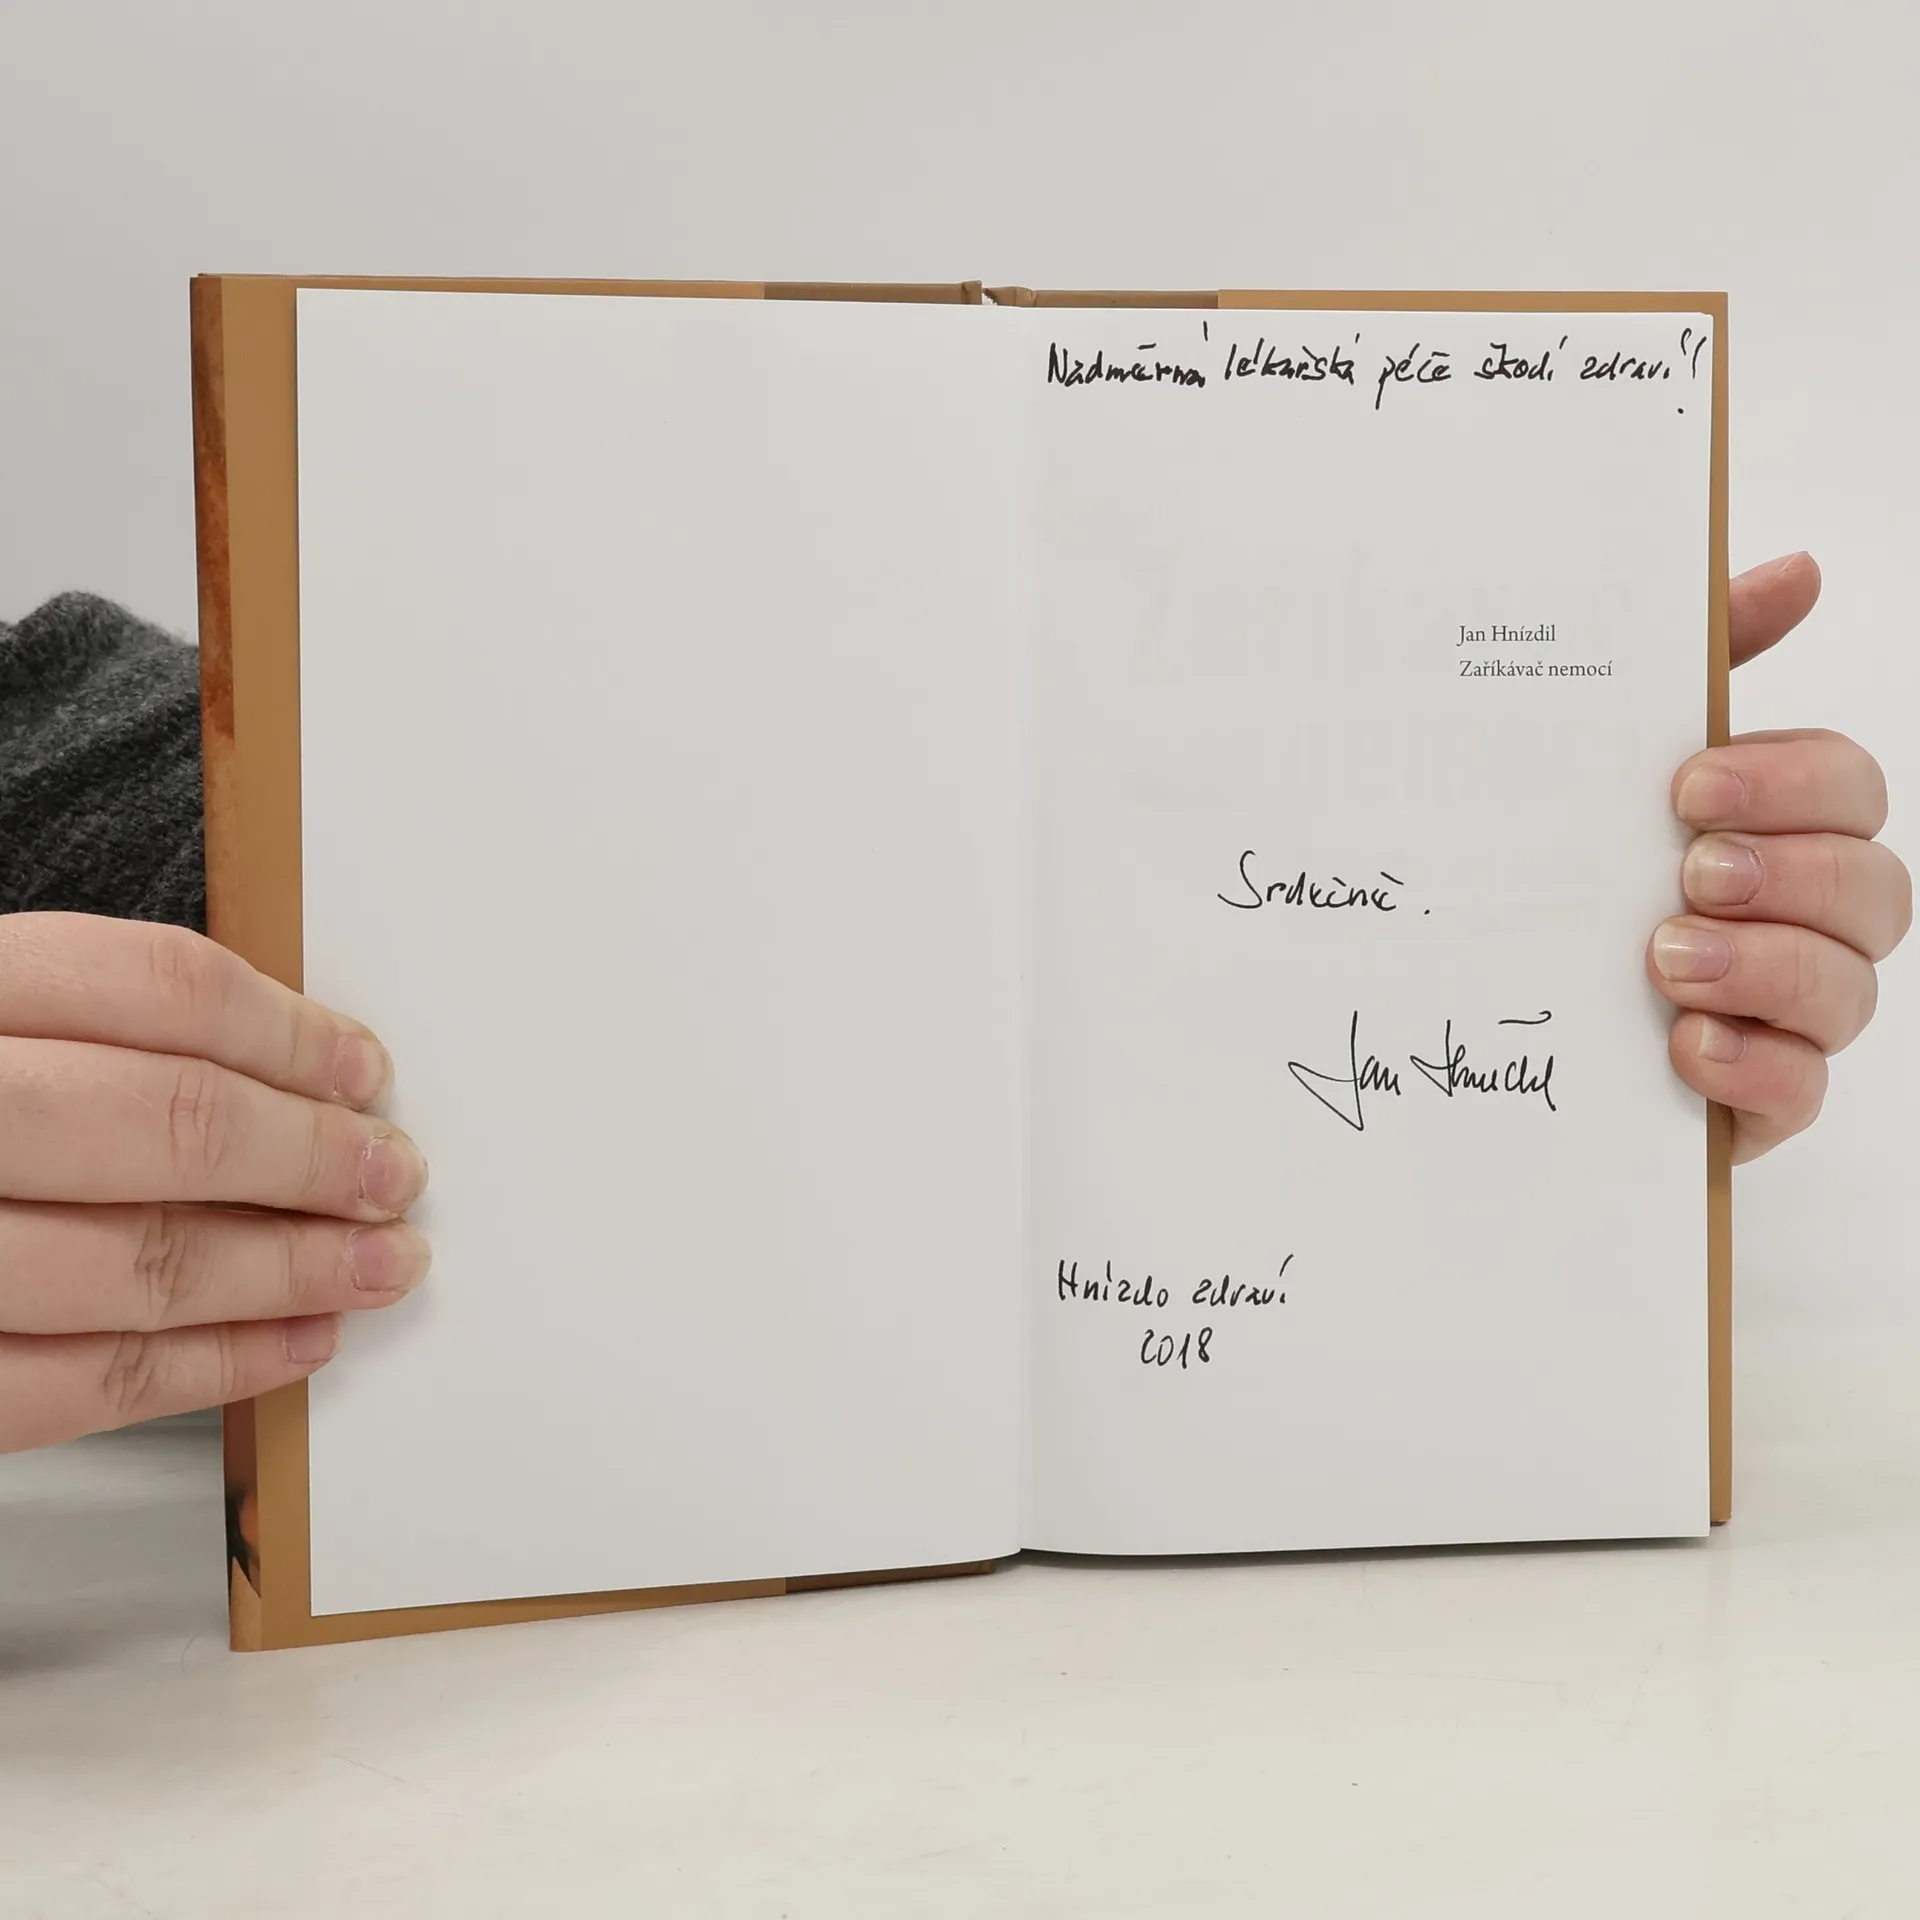 Nadměrná lékařská péče škodí zdraví!
Jan Hnízdil
Zaříkávač nemocí
Srdečně.
Jan Hnízdil
Hnízdo zdraví
2018